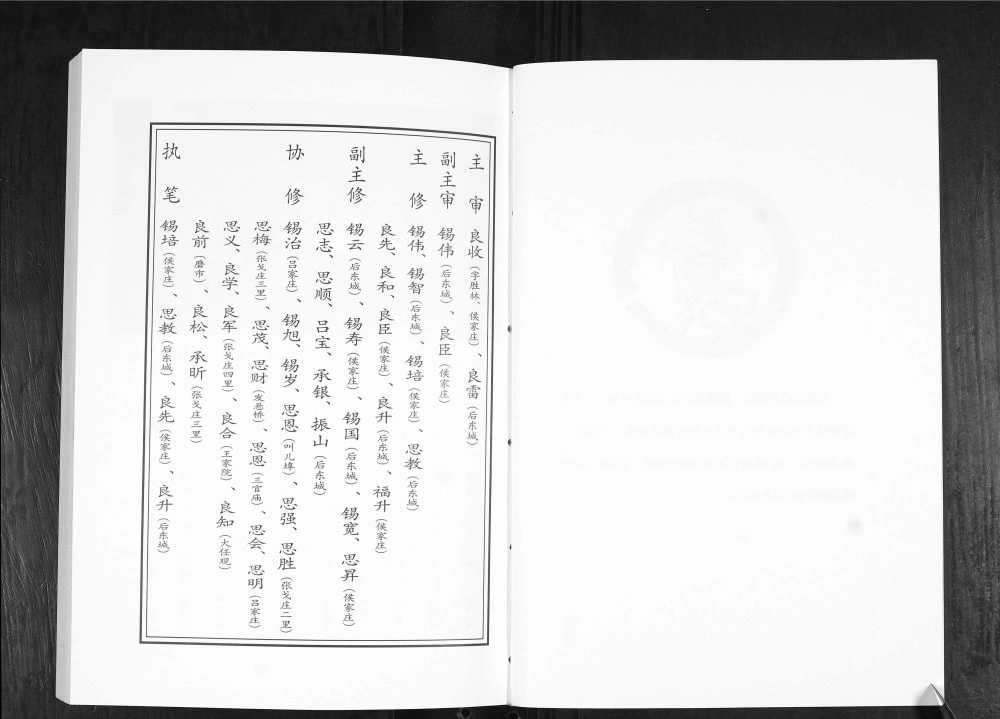 主 审 良收（字胜林、侯家庄）、良雷（后东城）
副主审 锡伟（后东城）、良臣（侯家庄）
主 修 锡伟、锡智（后东城）、锡培（侯家庄）、思教（后东城）
良先、良和、良臣（侯家庄）、良升（后东城）、福升（侯家庄）
副主修 锡云（后东城）、锡寿（侯家庄）、锡国（后东城）、锡宽、思昇（侯家庄）
思志、思顺、吕宝、承银、振山（后东城）
协 修 锡治（吕家庄）、锡旭、锡岁、思恩（叫儿埠）、思强、思胜（张戈庄二里）
思梅（张戈庄三里）、思茂、思财（发巷桥）、思恩（三官庙）、思会、思明（吕家庄）
思义、良学、良军（张戈庄四里）、良合（王家院）、良知（大任观）
良前（磨市）、良松、承昕（张戈庄三里）
执 笔 锡培（侯家庄）、思教（后东城）、良先（侯家庄）、良升（后东城）